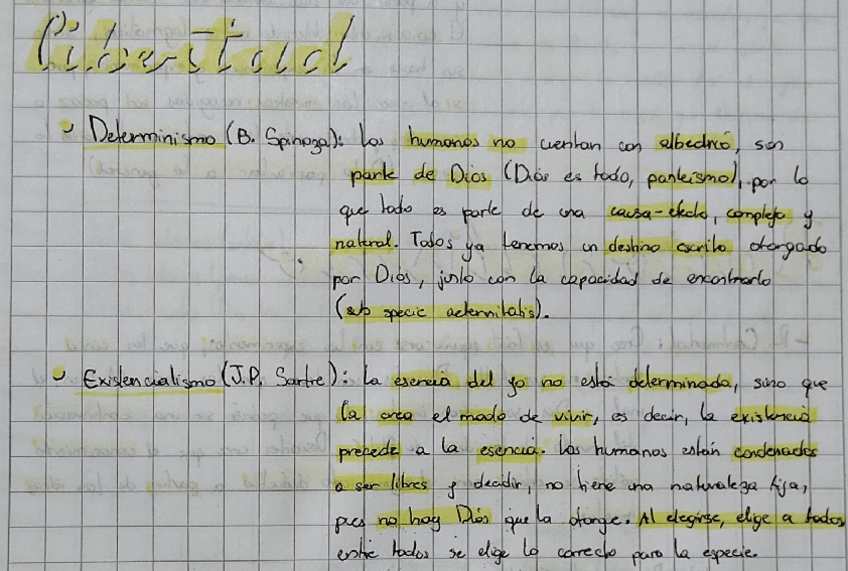 Libertad
Determinismo (B. Spinoza): Los humanos no cuentan con albedrío, son
parte de Dios (Dios es todo, panteísmo), por lo
que todo es parte de una causa-efecto, complejo y
natural. Todos ya tenemos un destino escrito otorgado
por Dios, junto con la capacidad de encontrarlo
(sub specie aeternitatis).
Existencialismo (J.P. Sartre): La esencia del yo no está determinada, sino que
la crea el modo de vivir, es decir, la existencia
precede a la esencia. Los humanos están condenados
a ser libres y decidir, no tiene una naturaleza fija,
pues no hay Dios que la otorge. Al elegirse, elige a todos
entre todos se elige lo correcto para la especie.